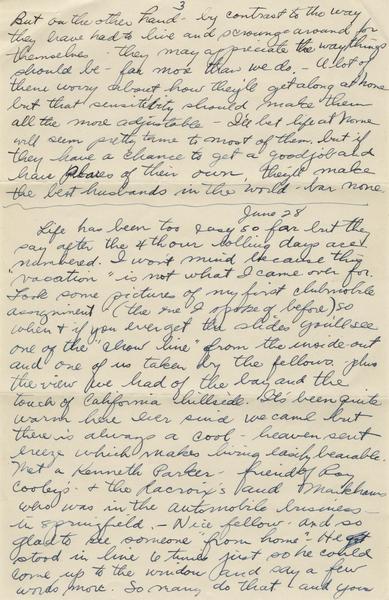 3
But on the other hand - by contrast to the way
they have had to live and scrounge around for
themselves - they may appreciate the way things
should be - far more than we do. A lot of
them worry about how they'll get along at home
but that sensitivity should make them
all the more adjustable - I'll bet life at home
will seem pretty tame to most of them, but if
they have a chance to get a good job and
have places of their own, they'll make
the best husbands in the world - bar none.
June 28
Life has been too easy so far but they
say after the 4th our lolling days are
numbered. I won't mind because this
"vacation" is not what I came over for.
Took some pictures of my first clubmobile
assignment (the one I spoke of before) so
when & if you ever get the slides you'll see
one of the "chow line" from the inside out
and one of us taken by the fellows, plus
the view we had of the bay and the
touch of California hillside. It's been quite
warm here ever since we came but
there is always a cool - heaven sent
breeze which makes living easily bearable.
Met a Kenneth Parker - friend of Ray
Cooley's & the Lacroix's and Markhams
who was in the automobile business
in Springfield. - Nice fellow - and so
glad to see someone "from home" - He
stood in line 6 times just so he could
come up to the window and say a few
words more. So many do that and you